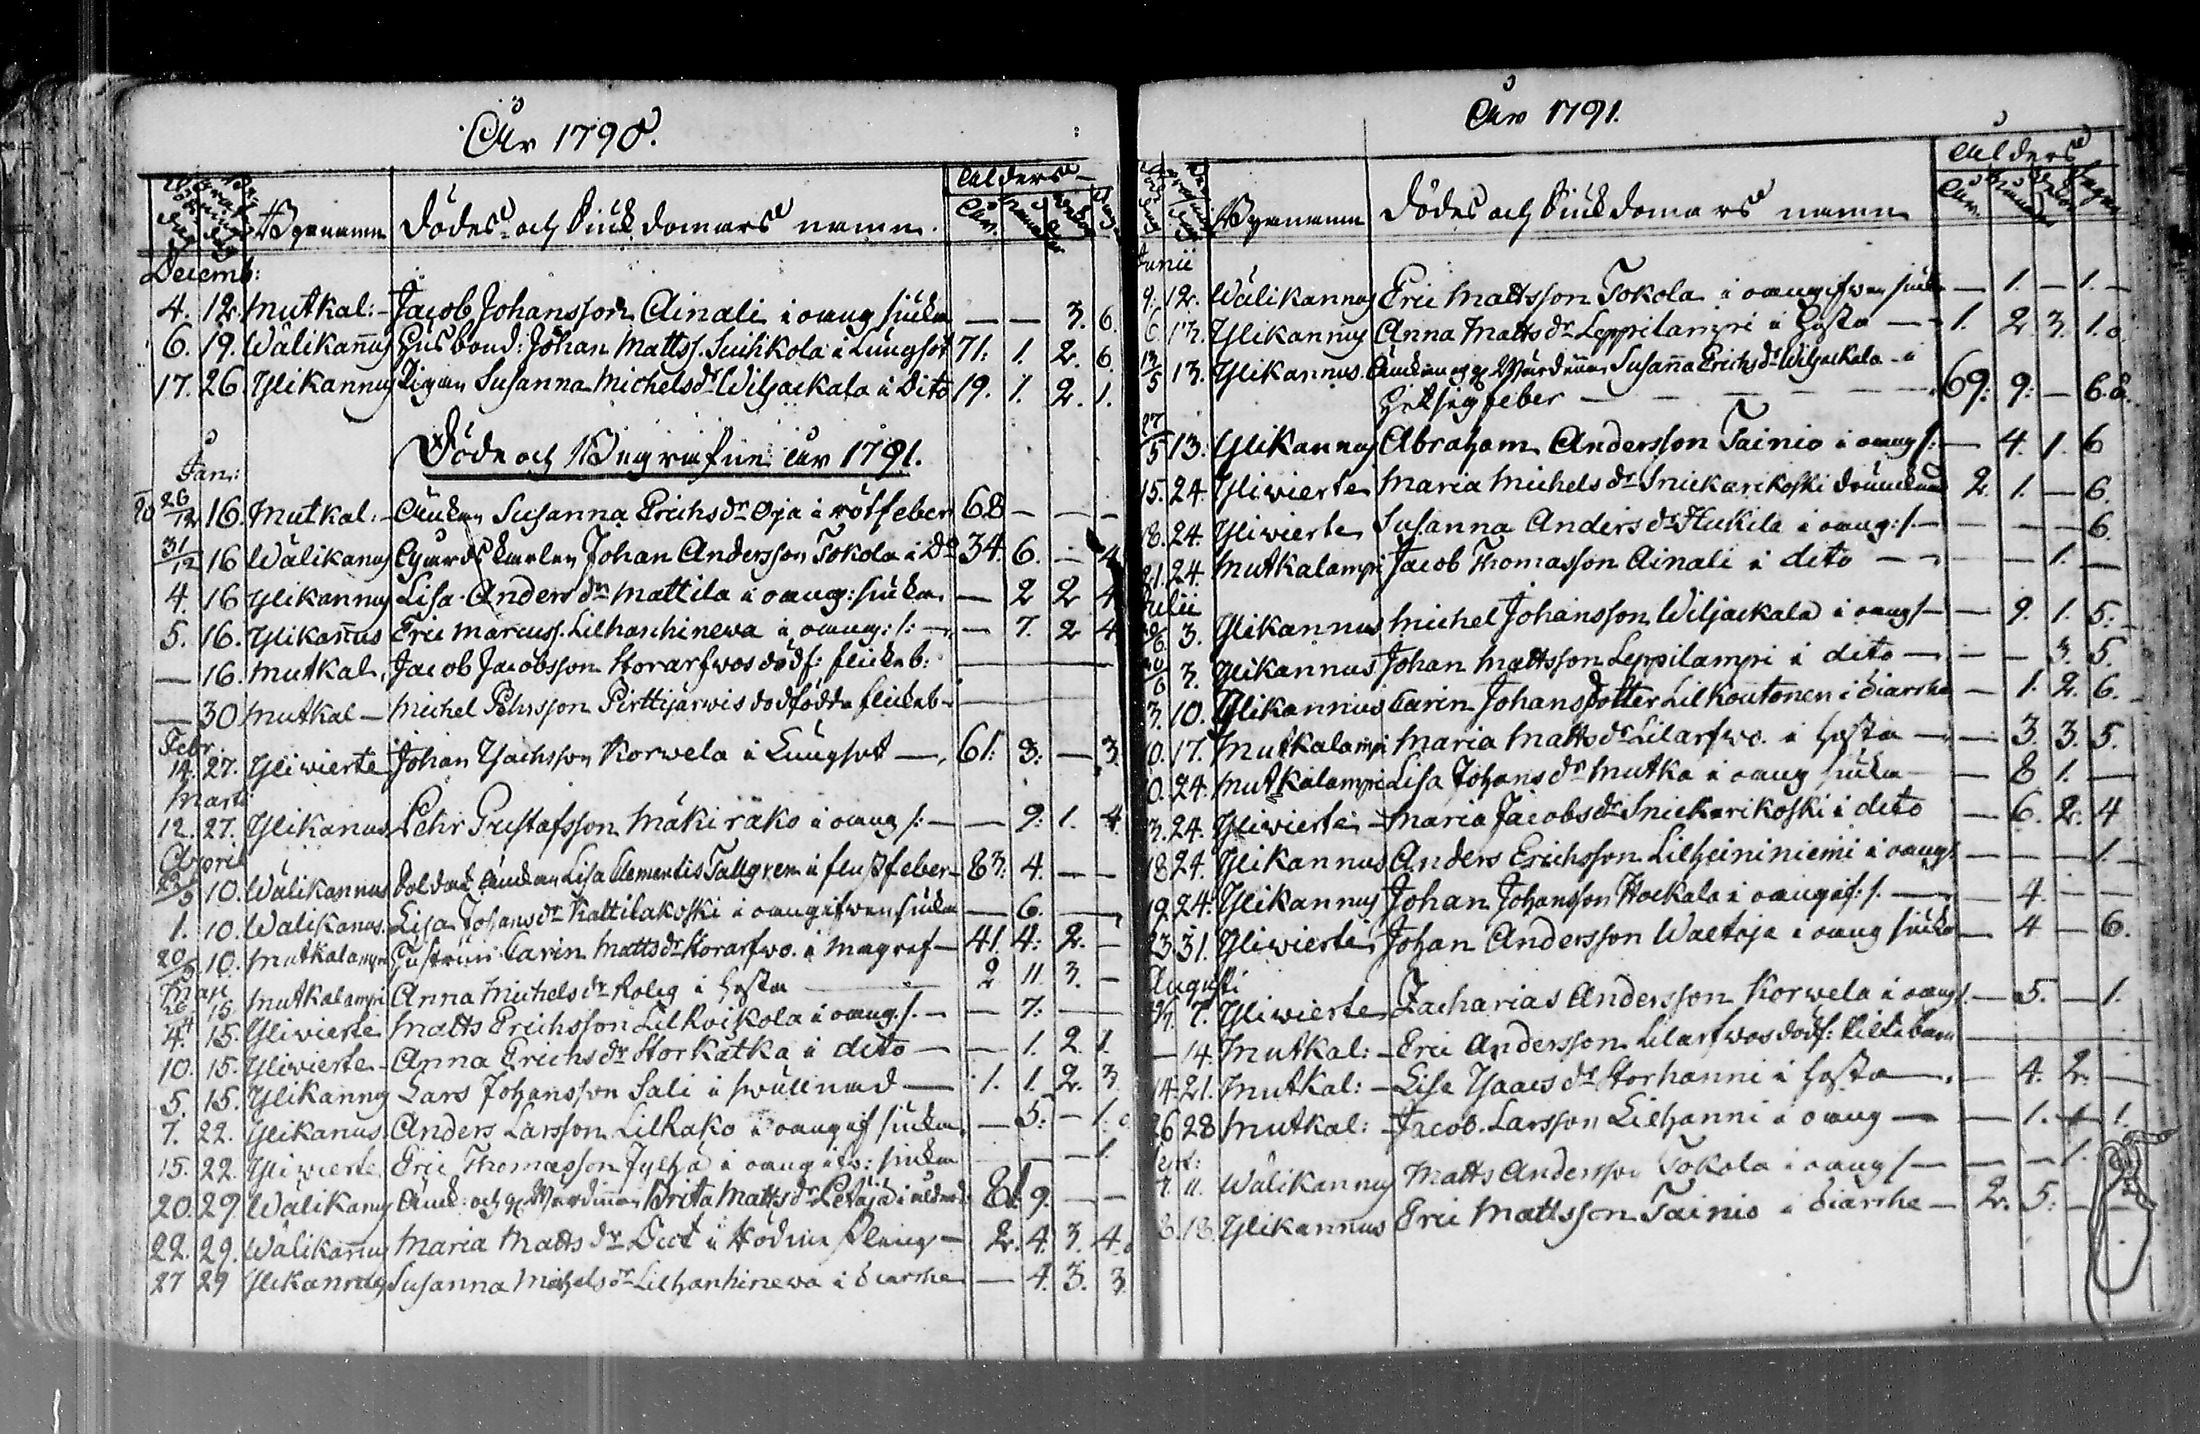 År 1790.
Byanamn Dödes och Siukdomars namn. Ålders År. Månader Wekor Dagar
Decemb:
4. 12. Mutkal: Jacob Johansson Ainali i oang siukd — — 3. 6.
6. 19. Wälikan̄us Husbond: Johan Mattss. Suihkola i Lungsot 71: 1. 2. 6.
17. 26. Ylikannus Pigan Susanna Michelsdr Wiljackala i Dito 19. 1. 2. 1.
Döde och Begrafne år 1791.
Jan:
26/12 16. Mutkal. Änkan Susanna Erichsdr Oja i rötfeber 68 — — —
31/12 16 Wälikanus Johan Andersson Tokola i Do 34. 6. — 4
4. 16 Ylikannus Lisa Andersdr Mattila i oang: siukd. — 2 2 4
5. 16. Ylikan̄us Eric Marcuss. Lilhanhinewa i oang: s: — 7. 2 4
— 16. Mutkal. Jacob Jacobsson Storarfwos dödf: flickeb:
— 30 Mutkal — Michel Pehrsson Pirttijärwis dödfödda flickeb —
Febr
14. 27. Yliwierte Johan Isachsson Korwela i Lungsot — 61: 8: — 3
Marti
12. 27. Ylikanus Pehr Gustafsson Mäkiräko i oang s: — — 9: 1. 4
April
10. Wälikannus Soldat Änkan Lisa Clementis Tallgren i flussfeber 83: 4. — —
1. 10. Walikanus. Lisa Johansdr Kattilakoski i oangifwen siukd — 6. —
20/3 10. Mutkalampi Hustrun Carin Mattsdr Storarfwo. i Magref — 41. 4: 2. —
Maji
26 15. Mutkalampi Anna Michelsdr Roleg i Hosta — 2 11 3. —
4. 15. Yliwierte Matts Erichsson LilRoiskola i oang. s. — — 7. — —
10. 15. Yliwierte — Anna Erichsdr Storkatka i dito — — 1. 2. 1.
5. 15. Ylikannus Lars Johansson Sali i swullnad — 1. 1. 2. 3.
7. 22. Ylikanus. Anders Larsson LilRako i oangif siukd. — 5: — 1.
15. 22. Yliwierte Eric Thomasson Jylhä i oangifw: siukd — — — 1.
20. 29. Wälikanus Änk: och Brita Mattsdr Petäjä i 81. 9. — —
22. 29. Wälikan̄us Maria Mattsdr Lut i Rödsiu — 2. 4. 3. 4.
27 29 Ylikannus Susanna Michelsdr Lilhanhinewa i diarrhe — 4. 3. 3.
År 1791.
Byanamn Dödes och Siukdomars namn Ålders År. Månader Wekor Dagar
Junii
9. 12. Wälikannus Eric Mattsson Tokola i oangifwen siukd — 1. — 1. —
6. 13. Ylikannus Anna Mattsdr Leppilampi i Hosta — 1. 2 3. 1.
13/5 13. Ylikannus. Änkan Susan̄a Erichsdr Wiljackala i
Hetsigfeber — 69: 9: — 6.
27/5 13: Ylikannus Abraham Andersson Tainio i oang s: — 4. 1. 6
15. 24. Yliwierte Maria Michelsdr Snickarikoski drunknad 2. 1. — 6.
18. 24. Yliwierte Susanna Andersdr Heikila i oang: s. — — — 6.
21. 24. Mutkalampi Jacob Thomasson Ainali i dito — — — 1. —
Julii
3. Ylikannus Michel Johansson Wiljackala i oang s — — 9. 1. 5:
3. Ylikannus Johan Mattsson Leppilampi i dito — — — 3. 5.
3. 10. Ylikannus Carin Johans Dotter Lilkoutonen i diarrhe — 1. 2. 6.
10. 17. Mutkalampi Maria Mattsdr Lilarfwo. i Hosta — 3. 3. 5.
24. Mutkalampi Lisa Johansdr Mutka i oang siukd — 8 1. —
24. Yliwierte — Maria Jacobsdr Snickarikoski i dito — 6. 2. 4
18 24. Ylikannus Anders Erichsson Lilheininiemi i oang s — — — 1. —
19. 24. Ylikannus Johan Johansson Hockala i oangif: s. — 4. — —
23. 31. Yliwierte Johan Andersson Waltaja i oang siukd — 4 — 6.
Augusti
7. Yliwierte Zacharias Andersson Korwela i oang s. — 5. — 1.
— 14. Mutkal: — Eric Andersson Lilarfwos dödf:
14. 21. Mutkal: — Lisa Isaacsdr Storhanni i Hosta — 4. 2. —
26 28 Mutkal: — Jacob Larsson Lilhanni i oang — — 1. 1 1.
Sept:
7. 11. Wälikannus Matts Andersson Tokola i oang s — — — 1.
8. 18. Ylikannus Eric Mattsson Tainio i diarrhe — 2. 5: — —